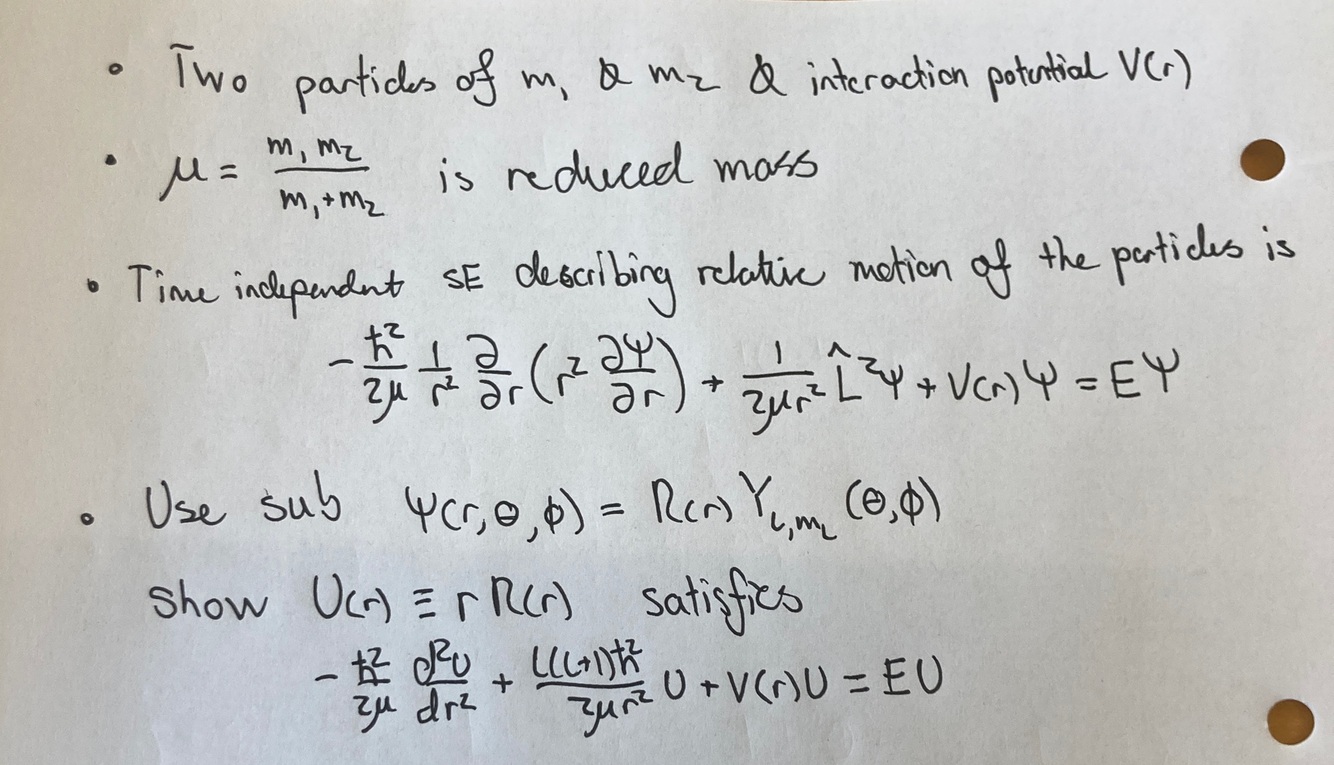 • Two particles of m₁ & m₂ & interaction potential V(r)
• μ = m₁m₂/(m₁+m₂) is reduced mass
• Time independent SE describing relative motion of the particles is
-ħ²/2μ 1/r² ∂/∂r (r² ∂Ψ/∂r) + 1/2μr² L̂²Ψ + V(r)Ψ = EΨ
• Use sub Ψ(r,θ,φ) = R(r)Y_{l,m_l}(θ,φ)
show U(r) ≡ rR(r) satisfies
-ħ²/2μ d²U/dr² + l(l+1)ħ²/2μr² U + V(r)U = EU